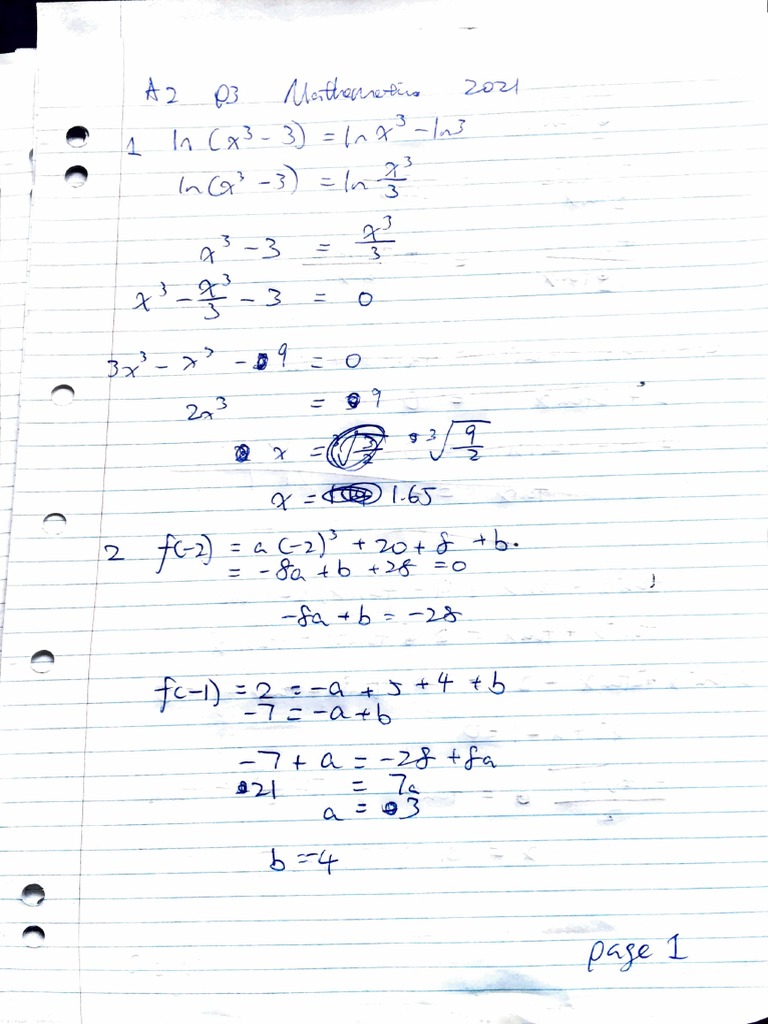 A2 P3 Mathematics 2021
1 ln(x³ - 3) = ln x³ - ln3
ln(x³ - 3) = ln x³/3
x³ - 3 = x³/3
x³ - x³/3 - 3 = 0
3x³ - x³ - 9 = 0
2x³ = 9
x = ³√(9/2)
x = 1.65
2 f(-2) = a(-2)³ + 20 + 8 + b.
= -8a + b + 28 = 0
-8a + b = -28
f(-1) = 2 = -a + 5 + 4 + b
-7 = -a + b
-7 + a = -28 + 8a
21 = 7a
a = 3
b = -4
page 1